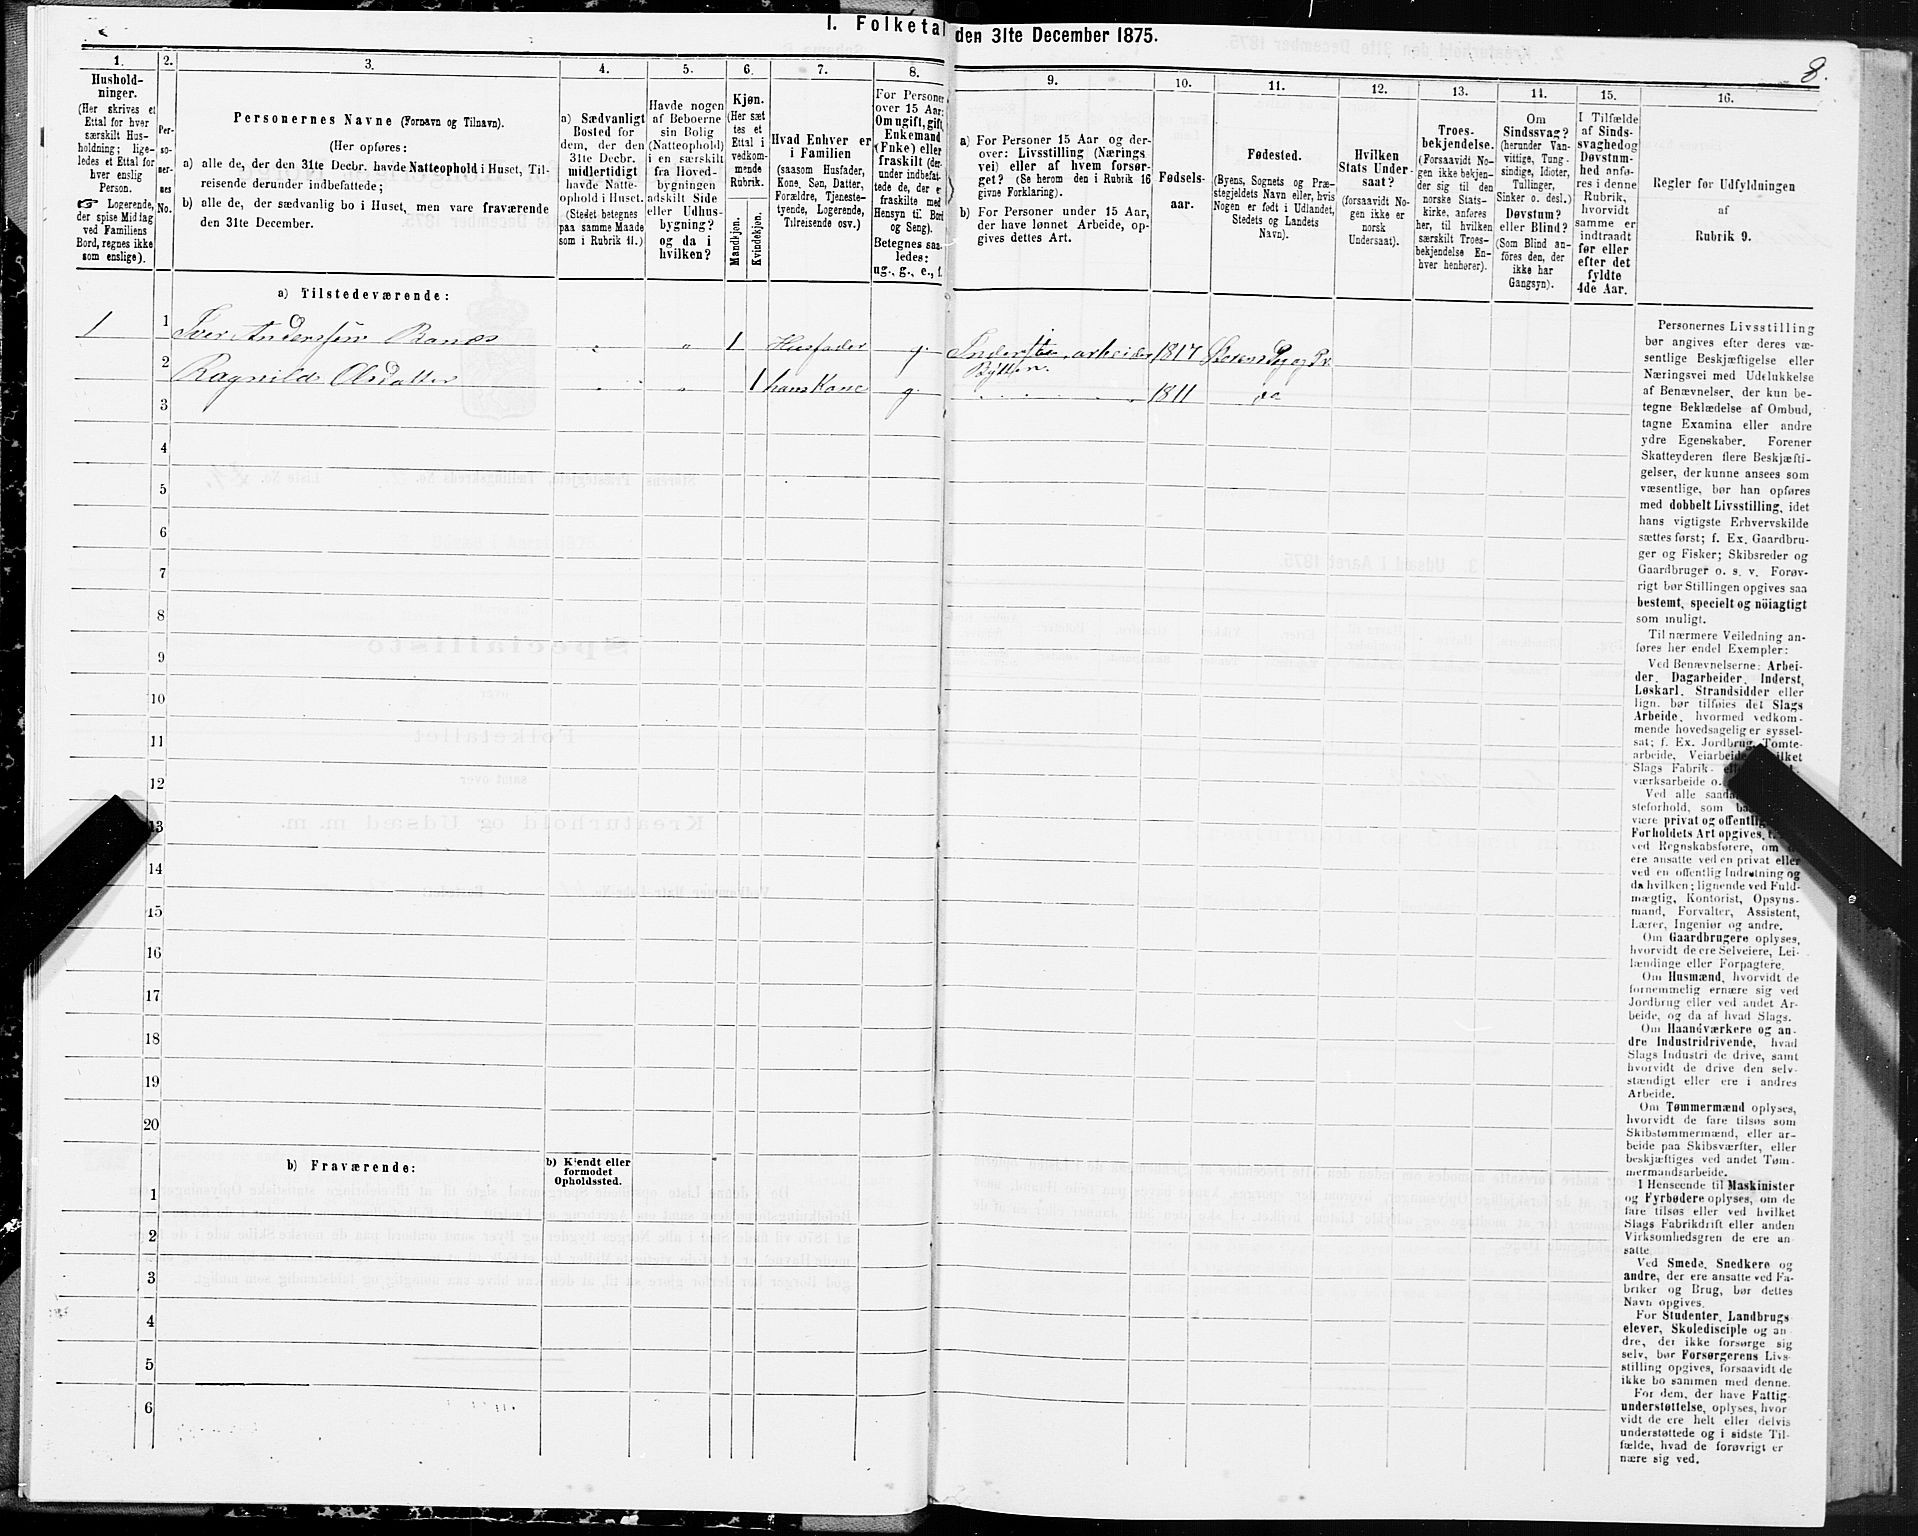 I. Folketal den 31te December 1875.
8.
1.
Hushold-
ninger.
(Her skrives et
Ettal for hver
særskilt Hus-
holdning; lige-
ledes et Ettal for
hver enslig
Person.
☞ Logerende,
der spise Middag
ved Familiens
Bord, regnes ikke
som enslige).
2.
Per-
so-
ner-
nes
No.
3.
Personernes Navne (Fornavn og Tilnavn).
(Her opføres:
a) alle de, der den 31te Decbr. havde Natteophold i Huset, Til-
reisende derunder indbefattede;
b) alle de, der sædvanlig bo i Huset, men vare fraværende
den 31te December.
4.
a) Sædvanligt
Bosted for
dem, der den
31te Decbr.
midlertidigt
havde Natte-
ophold i Huset.
(Stedet betegnes
paa samme Maade
som i Rubrik 11.)
5.
Havde nogen
af Beboerne
sin Bolig
(Natteophold)
i en særskilt
fra Hoved-
bygningen
adskilt Side
eller Udhus-
bygning?
og da i
hvilken?
6.
Kjøn.
(Her sæt
tes et
Ettal i
vedkom-
mende
Rubrik.
Mandkjøn.
Kvindekjøn.
7.
Hvad Enhver er
i Familien
(saasom Husfader,
Kone, Søn, Datter,
Forældre, Tjeneste-
tyende, Logerende,
Tilreisende osv.)
8.
For Personer
over 15 Aar:
Om ugift, gift,
Enkemand
(Enke) eller
fraskilt (der-
under indbefat-
tede de, der er
fraskilte med
Hensyn til Bord
og Seng).
Betegnes saa-
ledes:
ug., g., e., f.
9.
a) For Personer 15 Aar og der-
over: Livsstilling (Nærings
vei) eller af hvem forsør-
get? (Se herom den i Rubrik 16
givne Forklaring).
b) For Personer under 15 Aar,
der have lønnet Arbeide, op-
gives dettes Art.
10.
Fødsels-
aar.
11.
Fødested.
(Byens, Sognets og Præ-
stegjeldets Navn eller, hvis
Nogen er født i Udlandet,
Stedets og Landets
Navn).
12.
Hvilken
Stats Under-
saat?
(forsaavidt No-
gen ikke er
norsk
Undersaat).
13.
Troes-
bekjendelse.
(Forsaavidt No-
gen ikke bekjen-
der sig til den
norske Stats-
kirke, anføres
her, til hvilken
særskilt Troes-
bekjendelse En-
hver henhører).
14.
Om
Sindssvag?
(herunder Van-
vittige, Tung-
sindige, Idioter,
Tullinger,
Sinker o. desl.)
Døvstum?
eller Blind?
(Som Blind an-
føres den, der
ikke har
Gangsyn).
15.
I Tilfælde
af Sinds-
svaghed og
Døvstum-
hed anfø-
res i denne
Rubrik,
hvorvidt
samme er
indtraadt
før eller
efter det
fyldte
4de Aar.
16.
Regler for Udfyldningen
af
Rubrik 9.
a) Tilstedeværende:
1 1 Iver Anderssøn Banes " " 1 Husfader g. Inderst, arbeider 1817 Størens Sog og Pr.
Bytten.
2 Ragnild Olsdatter " " 1 hans Kone g. 1811 do
3
4
5
6
7
8
9
10
11
12
13
14
15
16
17
18
19
20
b) Fraværende:
b) Kjendt eller
formodet
Opholdssted.
1
2
3
4
5
6
Personernes Livsstilling
bør angives efter deres væ-
sentlige Beskjæftigelse eller
Næringsvei med Udelukkelse
af Benævnelser, der kun be-
tegne Beklædelse af Ombud,
tagne Examina eller andre
ydre Egenskaber. Forener
Skatteyderen flere Beskjæfti-
gelser, der kunne ansees som
væsentlige, bør han opføres
med dobbelt Livsstilling, idet
hans vigtigste Erhvervskilde
sættes først; f. Ex. Gaardbru-
ger og Fisker; Skibsreder og
Gaardbruger o. s. v. Forøv-
rigt bør Stillingen opgives saa
bestemt, specielt og nöiagtigt
som muligt.
Til nærmere Veiledning an-
føres her endel Exempler:
Ved Benævnelserne: Arbei-
der, Dagarbeider, Inderst,
Løskarl, Strandsidder eller
lign. bør tilføies det Slags
Arbeide, hvormed vedkom-
mende hovedsagelig er syssel-
sat; f. Ex. Jordbrug, Tomte-
arbeide, Veiarbeide, hvilket
Slags Fabrik- 
værksarbeide o.
Ved alle saadan
steforhold, som
være privat og offentlig,
Forholdets Art opgives,
ved Regnskabsførere, om
ere ansatte ved en privat eller
ved en offentlig Indretning og
da hvilken; lignende ved Fuld-
mægtig, Kontorist, Opsyns-
mand, Forvalter, Assistent,
Lærer, Ingeniør og andre.
Om Gaardbrugere oplyses,
hvorvidt de ere Selveiere, Lei-
lændinge eller Forpagtere.
Om Husmænd, hvorvidt de
fornemmelig ernære sig ved
Jordbrug eller ved andet Ar-
beide, og da af hvad Slags.
Om Haandværkere og an-
dre Industridrivende, hvad
Slags Industri de drive, samt
hvorvidt de drive den selv-
stændigt eller ere i andres
Arbeide.
Om Tømmermænd oplyses,
hvorvidt de fare tilsøs som
Skibstømmermænd, eller ar-
beide paa Skibsværfter, eller
beskjæftiges ved andet Tøm-
mermandsarbeide.
I Henseende til Maskinister
og Fyrbødere oplyses, om de
fare tilsøs eller ved hvilket
Slags Fabrikdrift eller anden
Virksomhedsgren de ere an-
satte.
Ved Smede, Snedkere og
andre, der ere ansatte ved Fa-
briker og Brug, bør dettes
Navn opgives.
For Studenter, Landbrugs
elever, Skoledisciple og an
dre, der ikke forsørge sig
selv, bør Forsørgerens Livs-
stilling opgives, forsaavidt de
ikke bo sammen med denne.
For dem, der have Fattig
understøttelse, oplyses, hvor
vidt de ere helt eller delvis
understøttede og i sidste Til-
fælde, hvad de forøvrigt er
nære sig ved.